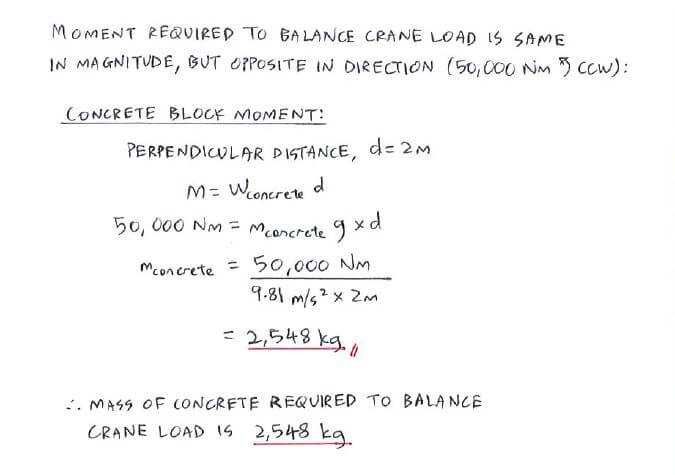 MOMENT REQUIRED TO BALANCE CRANE LOAD IS SAME
IN MAGNITUDE, BUT OPPOSITE IN DIRECTION (50,000 Nm ↺ CCW):
CONCRETE BLOCK MOMENT:
PERPENDICULAR DISTANCE, d = 2m
M = Wconcrete d
50,000 Nm = mconcrete g × d
mconcrete = 50,000 Nm
9.81 m/s² × 2m
= 2,548 kg //
∴ MASS OF CONCRETE REQUIRED TO BALANCE
CRANE LOAD IS 2,548 kg